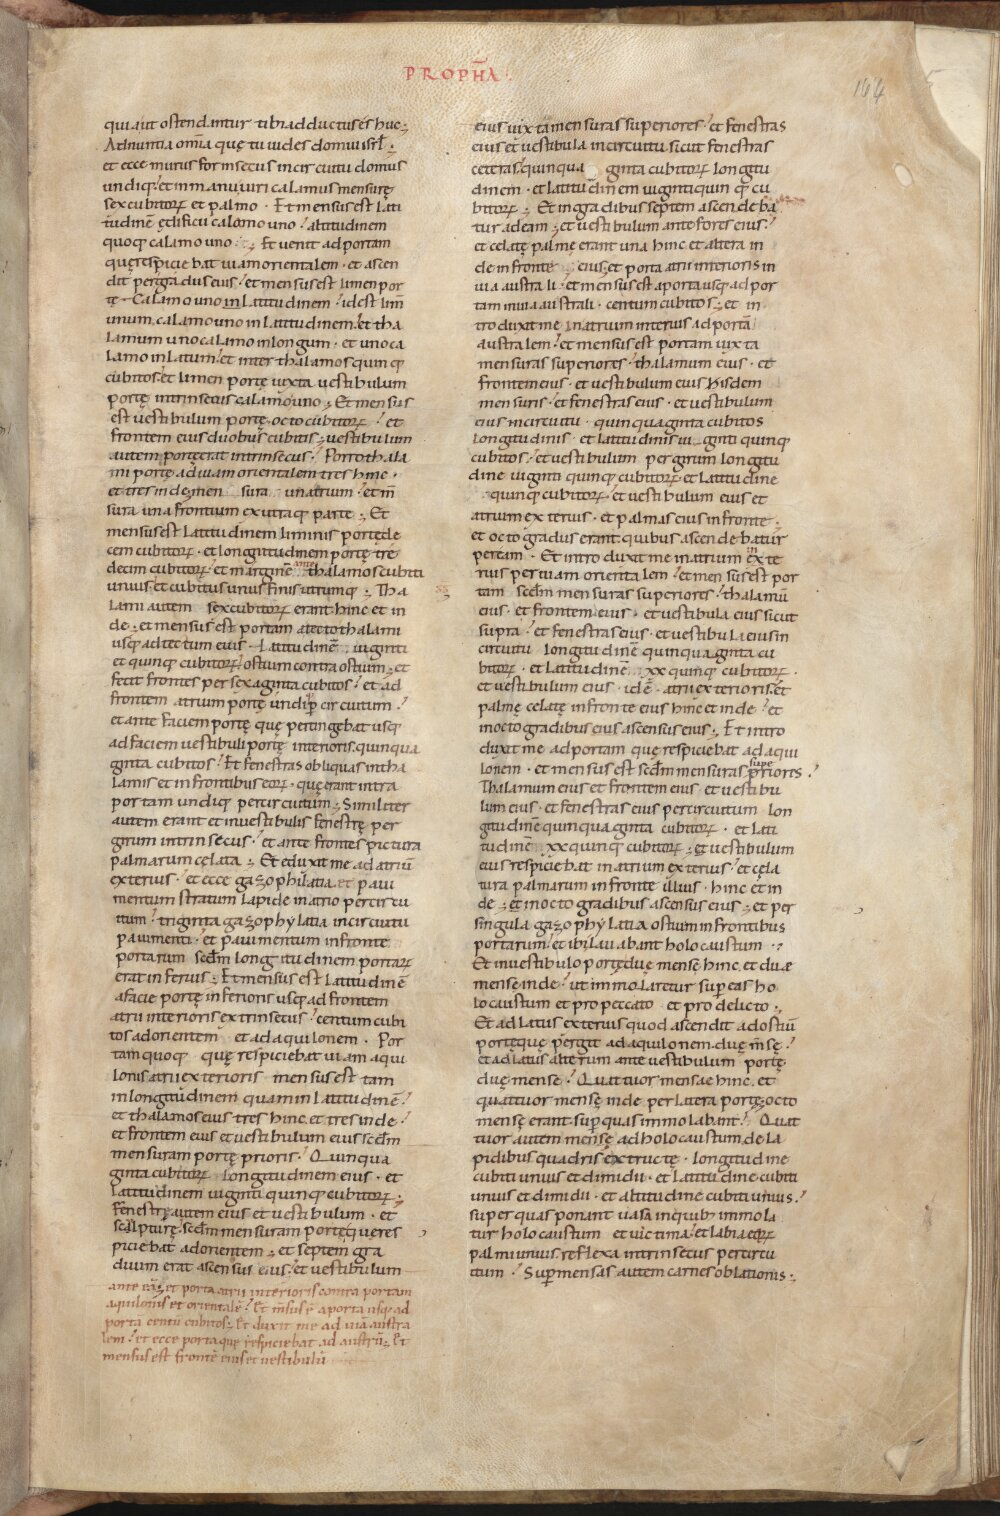 PROPHA
164
qui aut ostendantur tibi adductus es huc
Adnuntia omīa quę tu uides domui isrł
et ecce murus forinsecus in circuitu domus
undiq; et in manu uiri calamus mensurę
sex cubitorꝝ et palmo · Et mensus est lati
tudinē ędificii calamo uno altitudinem
quoq; calamo uno · Et uenit ad portam
quę respiciebat uiam orientalem · et ascen
dit per gradus eius et mensus est limen por
tę Calamo uno in latitudinem id est limē
unum calamo uno in latitudinem et tha
lamum uno calamo in longum · et uno ca
lamo in latum et inter thalamos quinq;
cubitos et limen portę iuxta uestibulum
portę intrinsecus calamo uno Et mensus
est uestibulum portę octo cubitorꝝ et
frontem eius duobus cubitis uestibulum
autem portę erat intrinsecus Porro thala
mi portę ad uiam orientalem tres hinc ·
et tres inde men sura una trium et m̄
sura una frontium ex utraq; parte Et
mensus est latitudinem liminis portę de
cem cubitorꝝ · et longitudinem portę tre
decim cubitorꝝ et marginē ante thalamos cubiti
unius et cubitus unus finis utrumq; Tha
lami autem sex cubitorꝝ erant hinc et in
de et mensus est portam a tecto thalami
usq; ad tectum eius Latitudinē uiginti
et quinq; cubitorꝝ ostium contra ostium et
fecit frontes per sexaginta cubitos et ad
frontem atrium portę undiq; per circuitum
et ante faciem portę quę pertingebat usq;
ad faciem uestibuli portę interioris quinqua
ginta cubitos Et fenestras obliquas in tha
lamis et in frontibus eorꝝ · quę erant intra
portam undiq; per circuitum Similiter
autem erant et in uestibulis fenestrę per
girum intrinsecus et ante frontes pictura
palmarum celata Et eduxit me ad atriū
exterius et ecce gazophilatia et paui
mentum stratum lapide in atrio per circu
itum triginta gazophylatia in circuitu
pauimenti et pauimentum in fronte
portarum secdm̄ longitudinem portarꝝ
erat inferius Et mensus est latitudinē
a facie portę inferioris usq; ad frontem
atrii interioris extrinsecus centum cubi
tos ad orientem et ad aquilonem · Por
tam quoq; quę respiciebat uiam aqui
lonis atrii exterioris mensus est tam
in longitudinem quam in latitudinē
et thalamos eius tres hinc et tres inde
et frontem eius et uestibulum eius secdm̄
mensuram portę prioris Quinqua
ginta cubitorꝝ longitudinem eius · et
latitudinem uiginti quinq; cubitorꝝ
Fenestrę autem eius et uestibulum · et
sculpturę secdm̄ mensuram portę quę res
piciebat ad orientem et septem gra
duum erat ascensus eius et uestibulum
ante eā et porta atrii interioris contra portam
aquilonis et orientalē Et m̄sus ē a porta usq; ad
porta centū cubitos Et duxit me ad uiā austra
lem et ecce porta que respiciebat ad austrū Et
mensus est frontē eius et uestibulū
eius iuxta mensuras superiores et fenestras
eius et uestibula in circuitu sicut fenestras
ceteras quinqua ginta cubitorꝝ longitu
dinem · et latitudinem uiginti quinq; cu
bitorꝝ Et in gradibus septem ascendeba
tur ad eam et uestibulum ante fores eius
et celatę palmę erant una hinc et altera in
de in fronte eius et porta atrii interioris in
uia australi et mensus est a porta usq; ad por
tam in uia australi · centum cubitos et in
troduxit me in atrium interius ad portā
australem et mensus est portam iuxta
mensuras superiores thalamum eius · et
frontem eius · et uestibulum eius hisdem
mensuris et fenestras eius · et uestibulum
eius in circuitu · quinquaginta cubitos
longitudinis · et latitudinis ui ginti quinq;
cubitos et uestibulum per girum longitu
dine uiginti quinq; cubitorꝝ et latitudine
quinq; cubitorꝝ et uestibulum eius et
atrium exterius · et palmas eius in fronte
et octo gradus erant quibus ascendebatur
per eam · Et introduxit me in atrium in exte
rius per uiam orientalem et mensus est por
tam secdm̄ mensuras superiores thalamū
eius · et frontem eius · et uestibula eius sicut
supra et fenestras eius · et uestibula eius in
circuitu longitudinē quinquaginta cu
bitorꝝ · et latitudinē xx quinq; cubitorꝝ ·
et uestibulum eius · id ē · atrii exterioris et
palmę celatę in fronte eius hinc et inde et
in octo gradibus eius ascensus eius Et intro
duxit me ad portam quę respiciebat ad aqui
lonem · et mensus est secdm̄ mensuras supe priores
Thalamum eius et frontem eius et uestibu
lum eius · et fenestras eius per circuitum lon
gitudinē quinquaginta cubitorꝝ · et lati
tudinē xx quinq; cubitorꝝ et uestibulum
eius respiciebat in atrium exterius et cęla
tura palmarum in fronte illius · hinc et in
de et in octo gradibus ascensus eius et per
singula gazophylatia ostium in frontibus
portarum et ibi lauabant holocaustum ·
Et in uestibulo portę duę mensę hinc et duæ
mensę inde ut immolaretur sup̄ eas ho
locaustum et pro peccato et pro delicto
Et ad latus exterius quod ascendit ad ostiū
portę quę pergit ad aquilonem duę m̄sę
et ad latus alterum ante uestibulum portę
duę mensę Quattuor mensae hinc et
quattuor mensę inde per latera portę octo
mensę erant sup̄ quas immolabant Quat
tuor autem mensę ad holocaustum de la
pidibus quadris extructę · longitudine
cubiti unius et dimidii · et latitudine cubiti
unius et dimidii · et altitudine cubiti unius
super quas ponant uasa in quib; immola
tur holocaustum et uictima et labia earꝝ
palmi unius reflexa intrinsecus per circu
itum Sup̄ mensas autem carnes oblationis